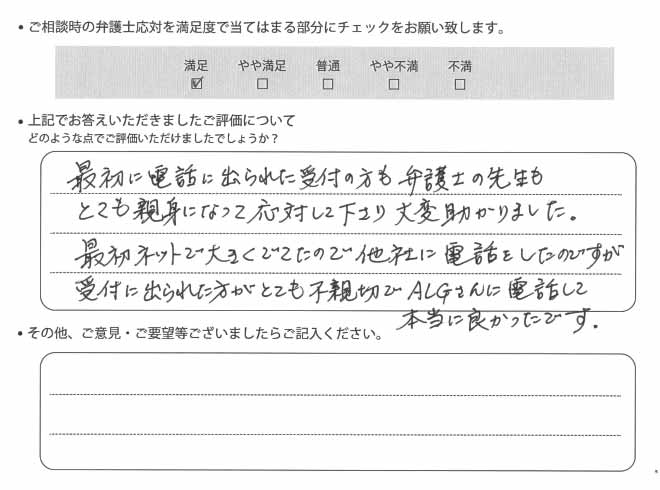 • ご相談時の弁護士応対を満足度で当てはまる部分にチェックをお願い致します。
満足 やや満足 普通 やや不満 不満
☑ ☐ ☐ ☐ ☐
• 上記でお答えいただきましたご評価について
どのような点でご評価いただけましたでしょうか?
最初に電話に出られた受付の方も弁護士の先生も
とても親身になって応対して下さり大変助かりました。
最初ネットで大きくでてたので他社に電話をしたのですが
受付に出られた方がとても不親切でALGさんに電話して
本当に良かったです.
• その他、ご意見・ご要望等ございましたらご記入ください。